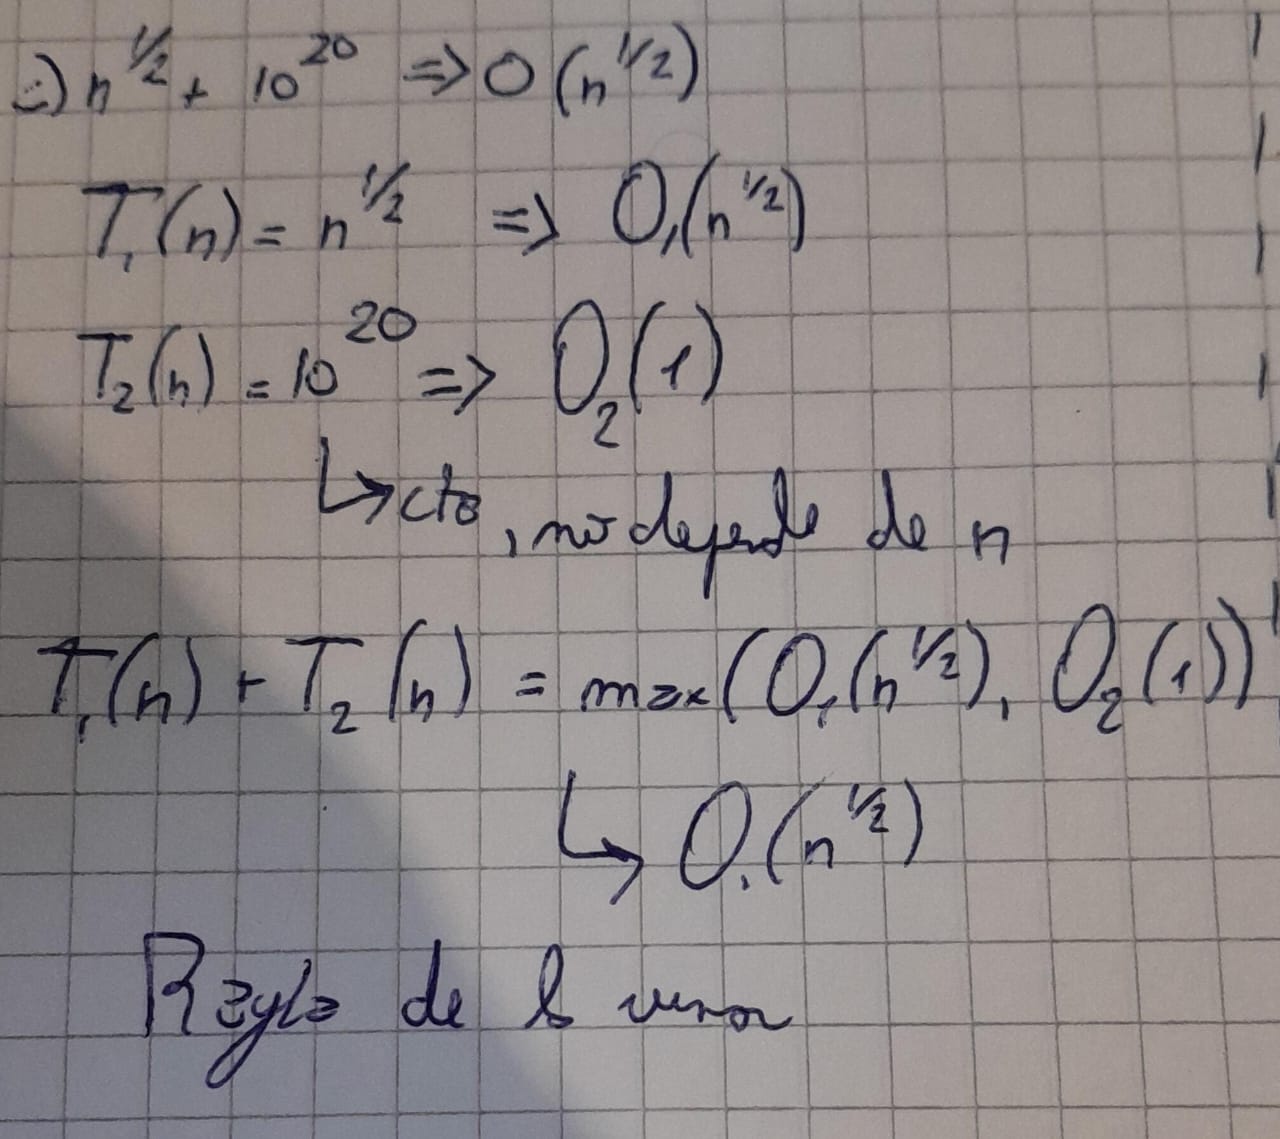 n^1/2 + 10^20 => O(n^1/2)
T₁(n) = n^1/2 => O₁(n^1/2)
T₂(n) = 10^20 => O₂(1)
↳ cte, no depende de n
T₁(n) + T₂(n) = max(O₁(n^1/2), O₂(1))
↳ O₁(n^1/2)
Regla de la